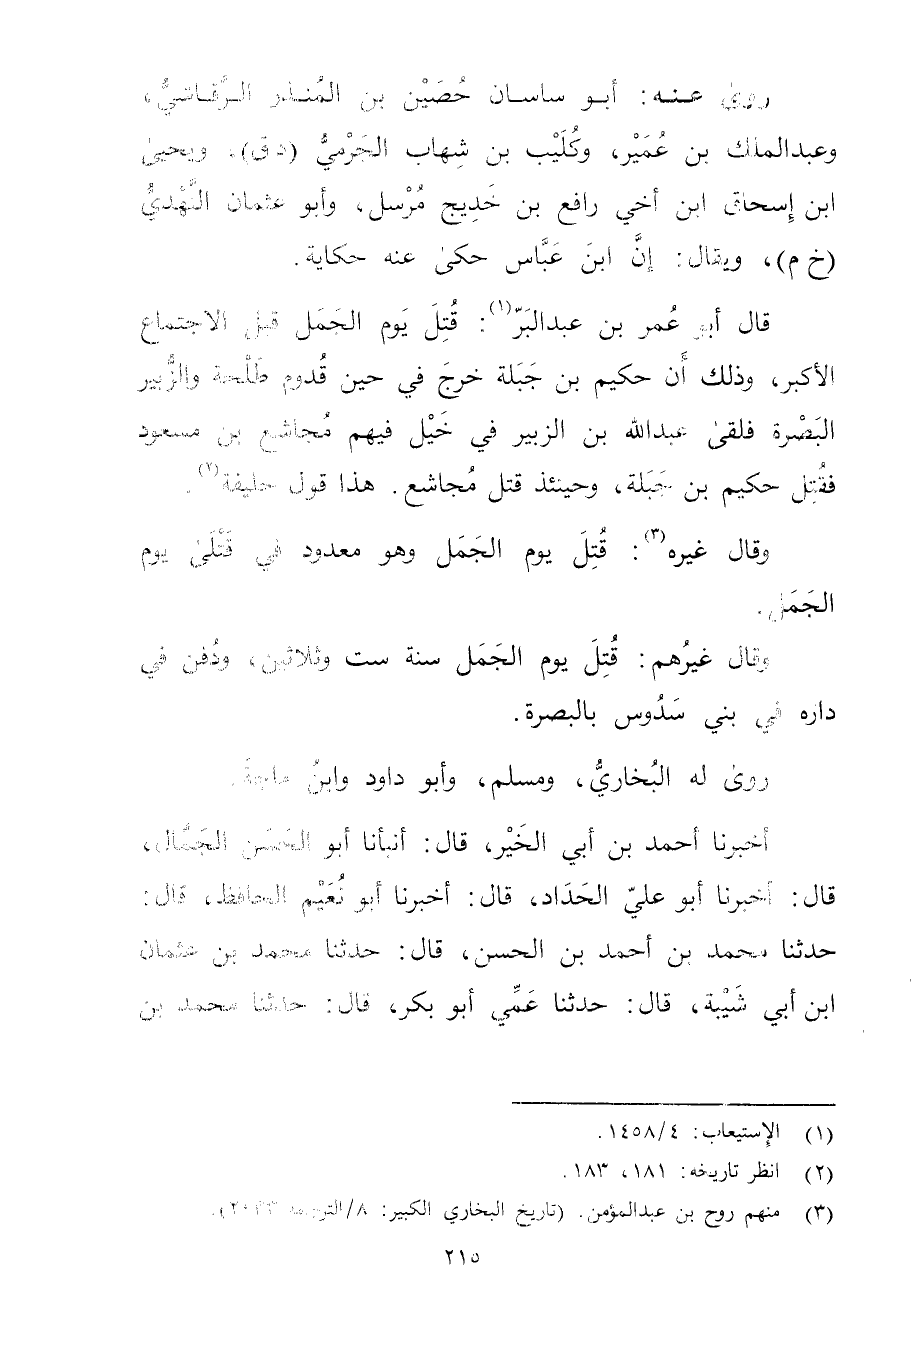 روىٰ عـنـه: أبـو ساسـان حُضَيْن بن المُنـذر الـرَّقـاشيُّ،
وعبدالملك بن عُمَيْر، وكُلَيْب بن شِهاب الجَرْميُّ (د ق)، ويحيىٰ
ابن إسحاق ابن أخي رافع بن خَدِيج مُرْسل، وأبو عثمان النَّهْديُّ
(خ م)، ويقال: إنَّ ابنَ عَبَّاس حكىٰ عنه حكاية.
قال أبو عُمر بن عبدالبَرّ(١): قُتِلَ يَوم الجَمَل قبل الاجتماع
الأكبر، وذلك أَن حكيم بن جَبَلة خرجَ في حين قُدوم طَلْحة والزُّبير
البَصْرة فلقىٰ عبدالله بن الزبير في خَيْل فيهم مُجاشع بن مسعود
فقُتِل حكيم بن جَبَلة، وحينئذ قتل مُجاشع. هذا قول خليفة(٢).
وقال غيره(٣): قُتِلَ يوم الجَمَل وهو معدود في قَتْلَىٰ يوم
الجَمَل.
وقال غيرُهم: قُتِلَ يوم الجَمَل سنة ست وثلاثين، ودُفن في
داره في بني سَدُوس بالبصرة.
روىٰ له البُخاريُّ، ومسلم، وأبو داود وابنُ ماجةَ.
أخبرنا أحمد بن أبي الخَيْر، قال: أنبأنا أبو الحَسَن الجَمَّال،
قال: أخبرنا أبو عليّ الحَدَاد، قال: أخبرنا أبو نُعَيْم الحافظ، قال:
حدثنا محمد بن أحمد بن الحسن، قال: حدثنا محمد بن عثمان
ابن أبي شَيْبة، قال: حدثنا عَمِّي أبو بكر، قال: حدثنا محمد بن
(١) الإستيعاب: ١٤٥٨/٤.
(٢) انظر تاريخه: ١٨١، ١٨٣.
(٣) منهم روح بن عبدالمؤمن. (تاريخ البخاري الكبير: ٨/الترجمة
٢١٥